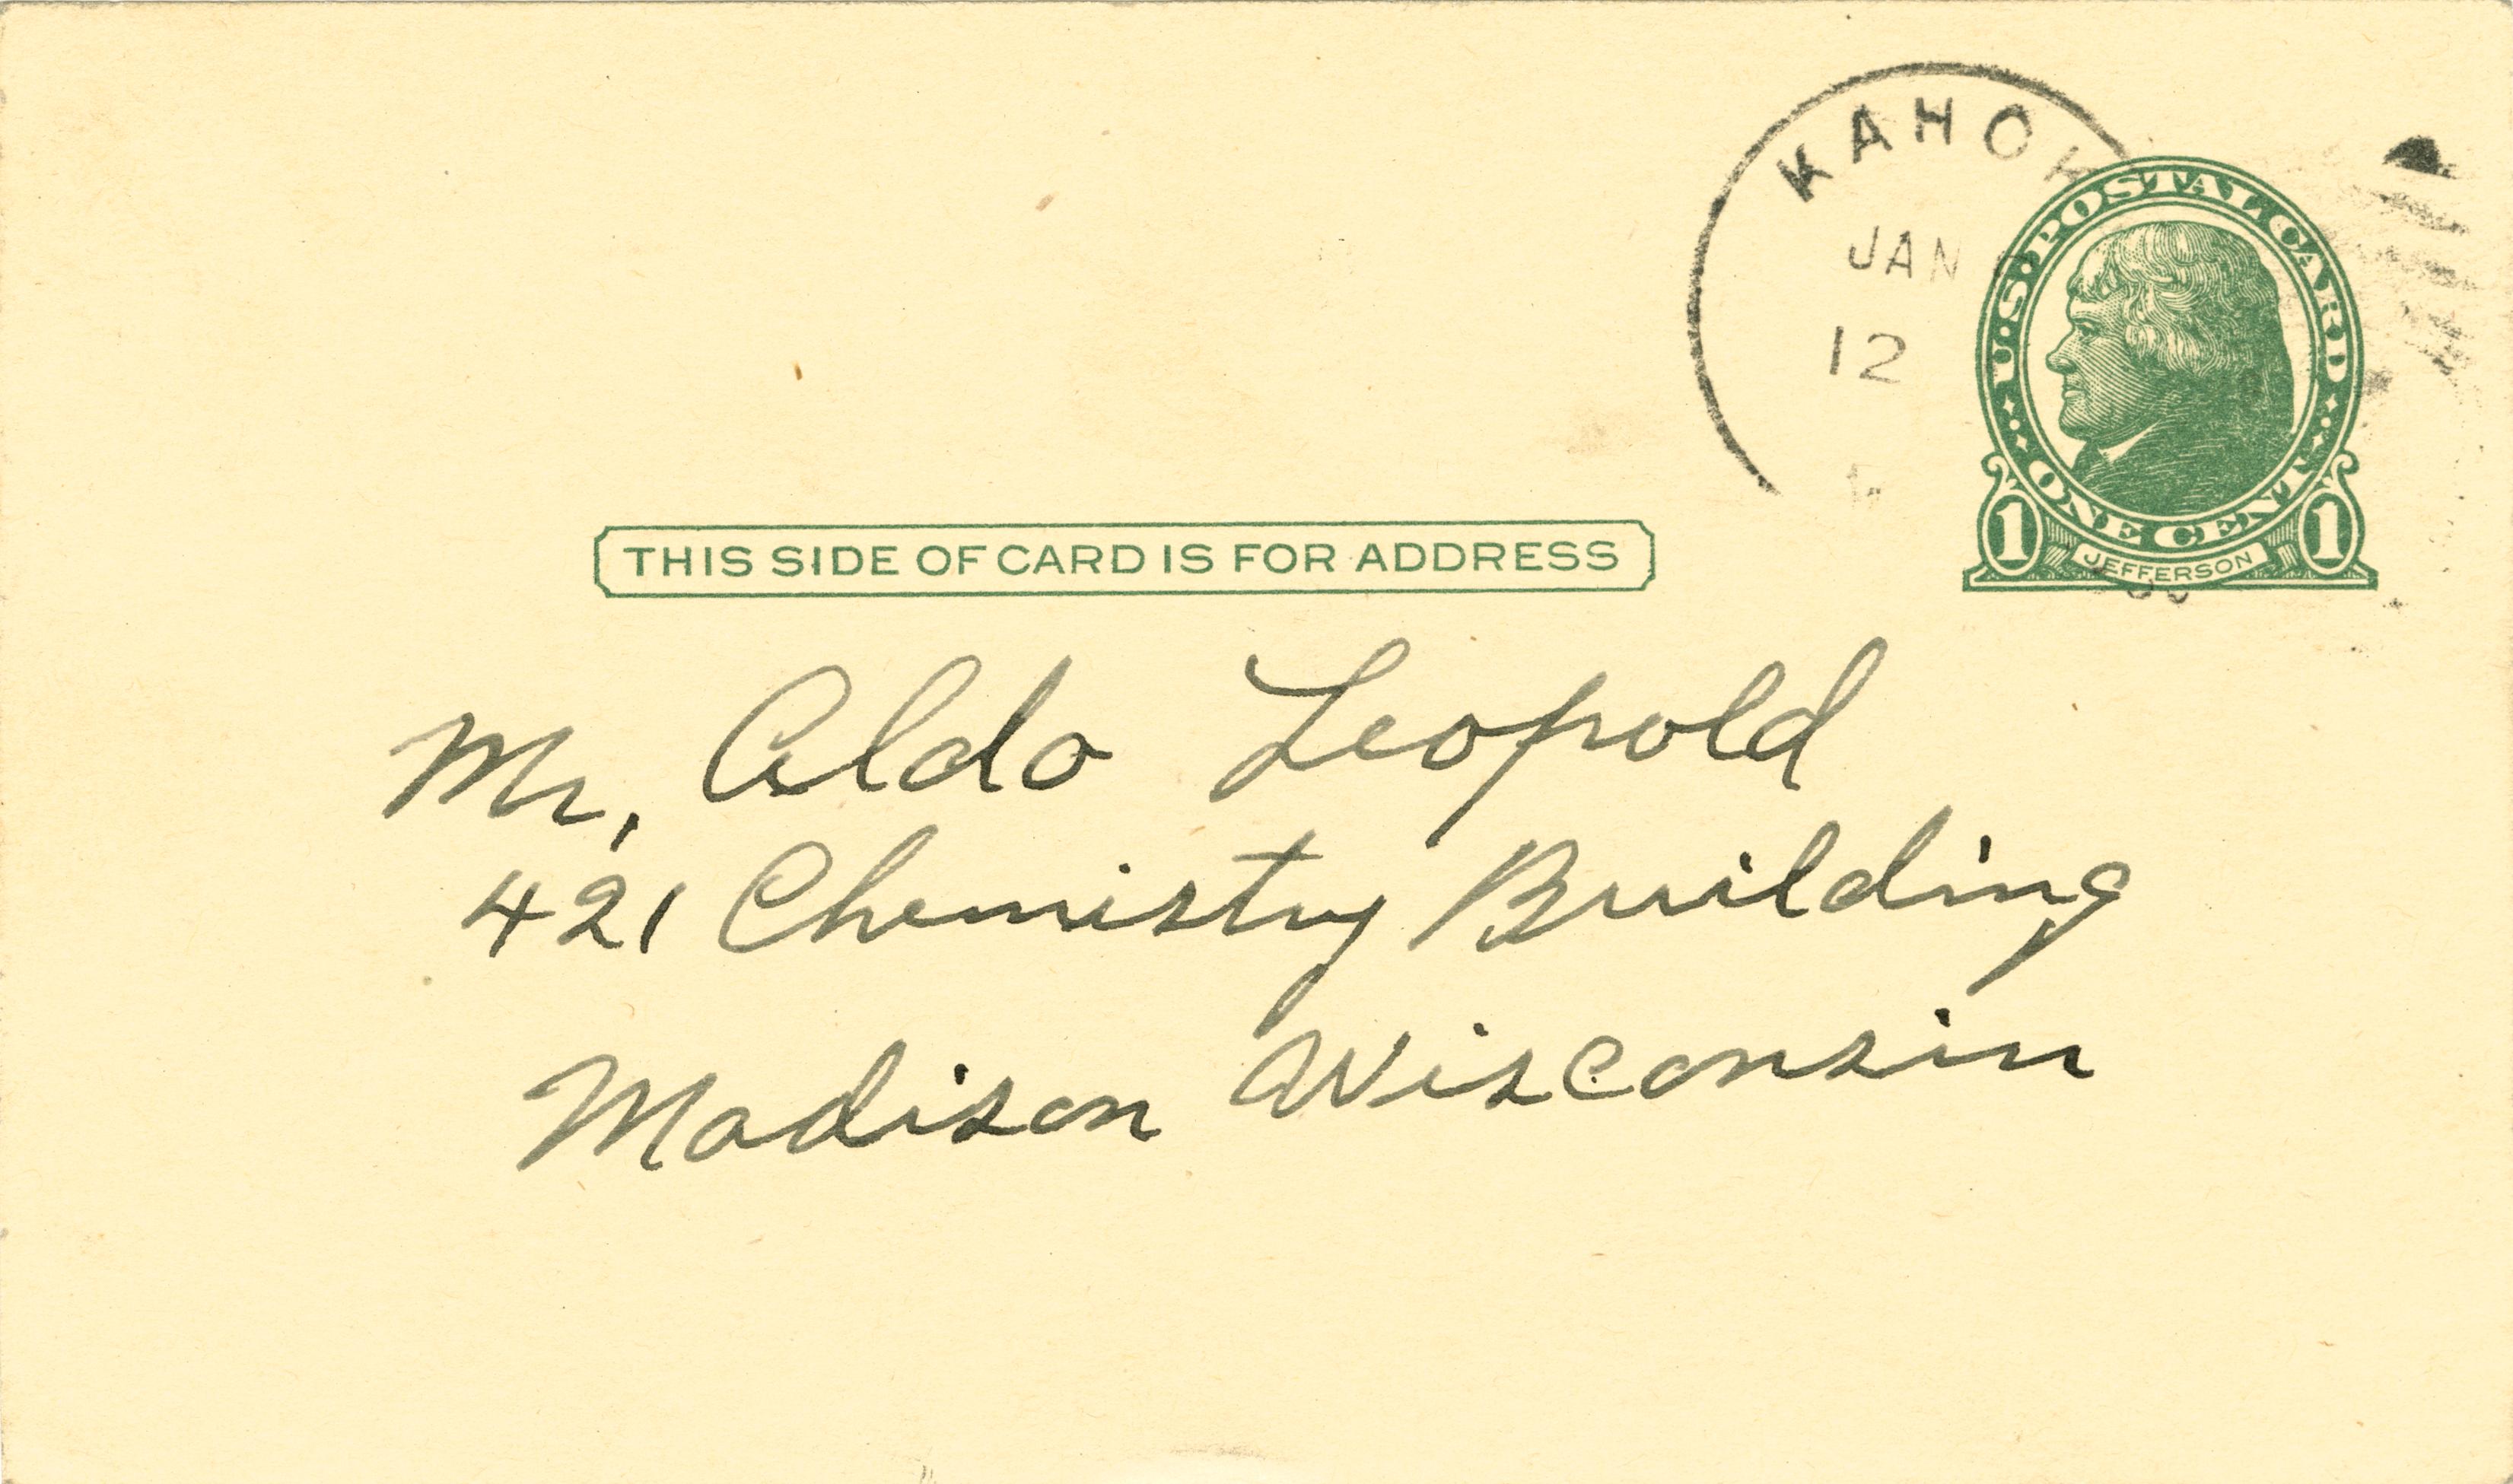 KAHOK
JAN
12
U.S. POSTAL CARD
ONE CENT
1 1
JEFFERSON
THIS SIDE OF CARD IS FOR ADDRESS
Mr. Aldo Leopold
421 Chemistry Building
Madison Wisconsin